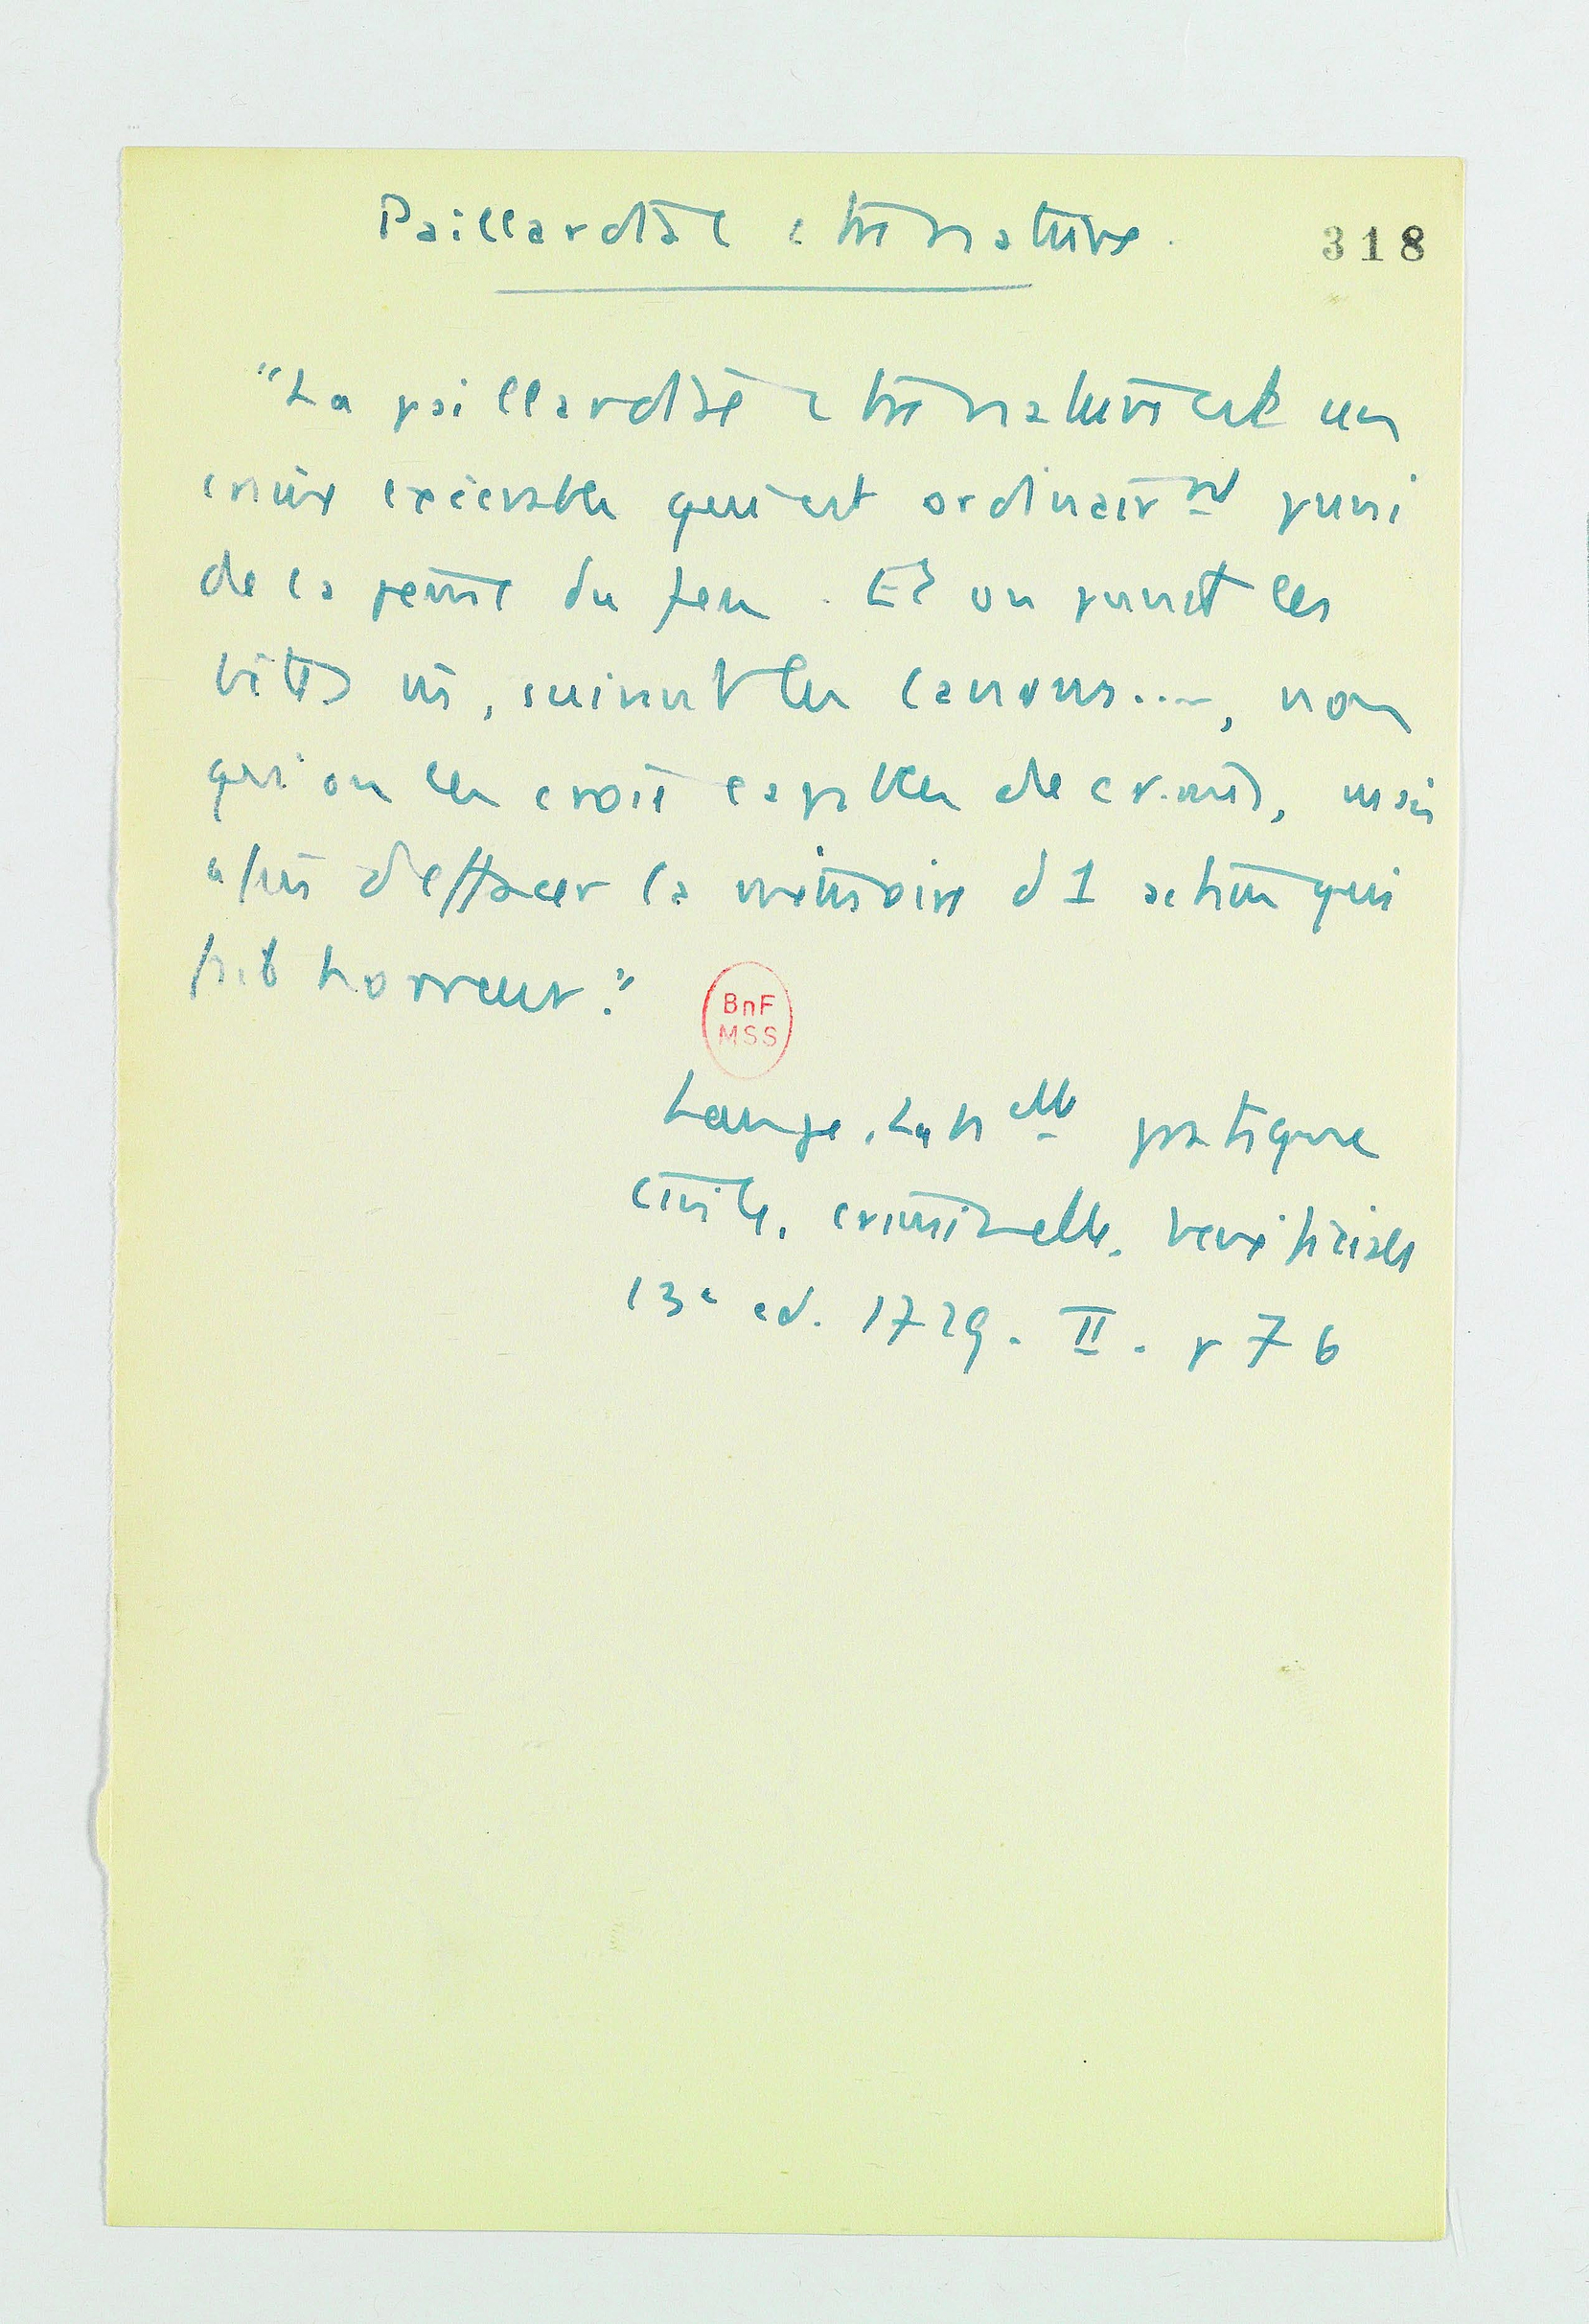 Paillardise c tre nature.
318
"La paillardise c tre nature est un
crime exécrable qui est ordinair nt puni
de la peine du feu. Et on punit les
bêtes m, suivant les canons...., non
qu'on les croie capables de crimes, mais
afin d'effacer la mémoire d'1 action qui
fait horreur."
BnF
MSS
Lange, La n elle pratique
civile, criminelle, bénéficiale
13e ed. 1729. II. p 76